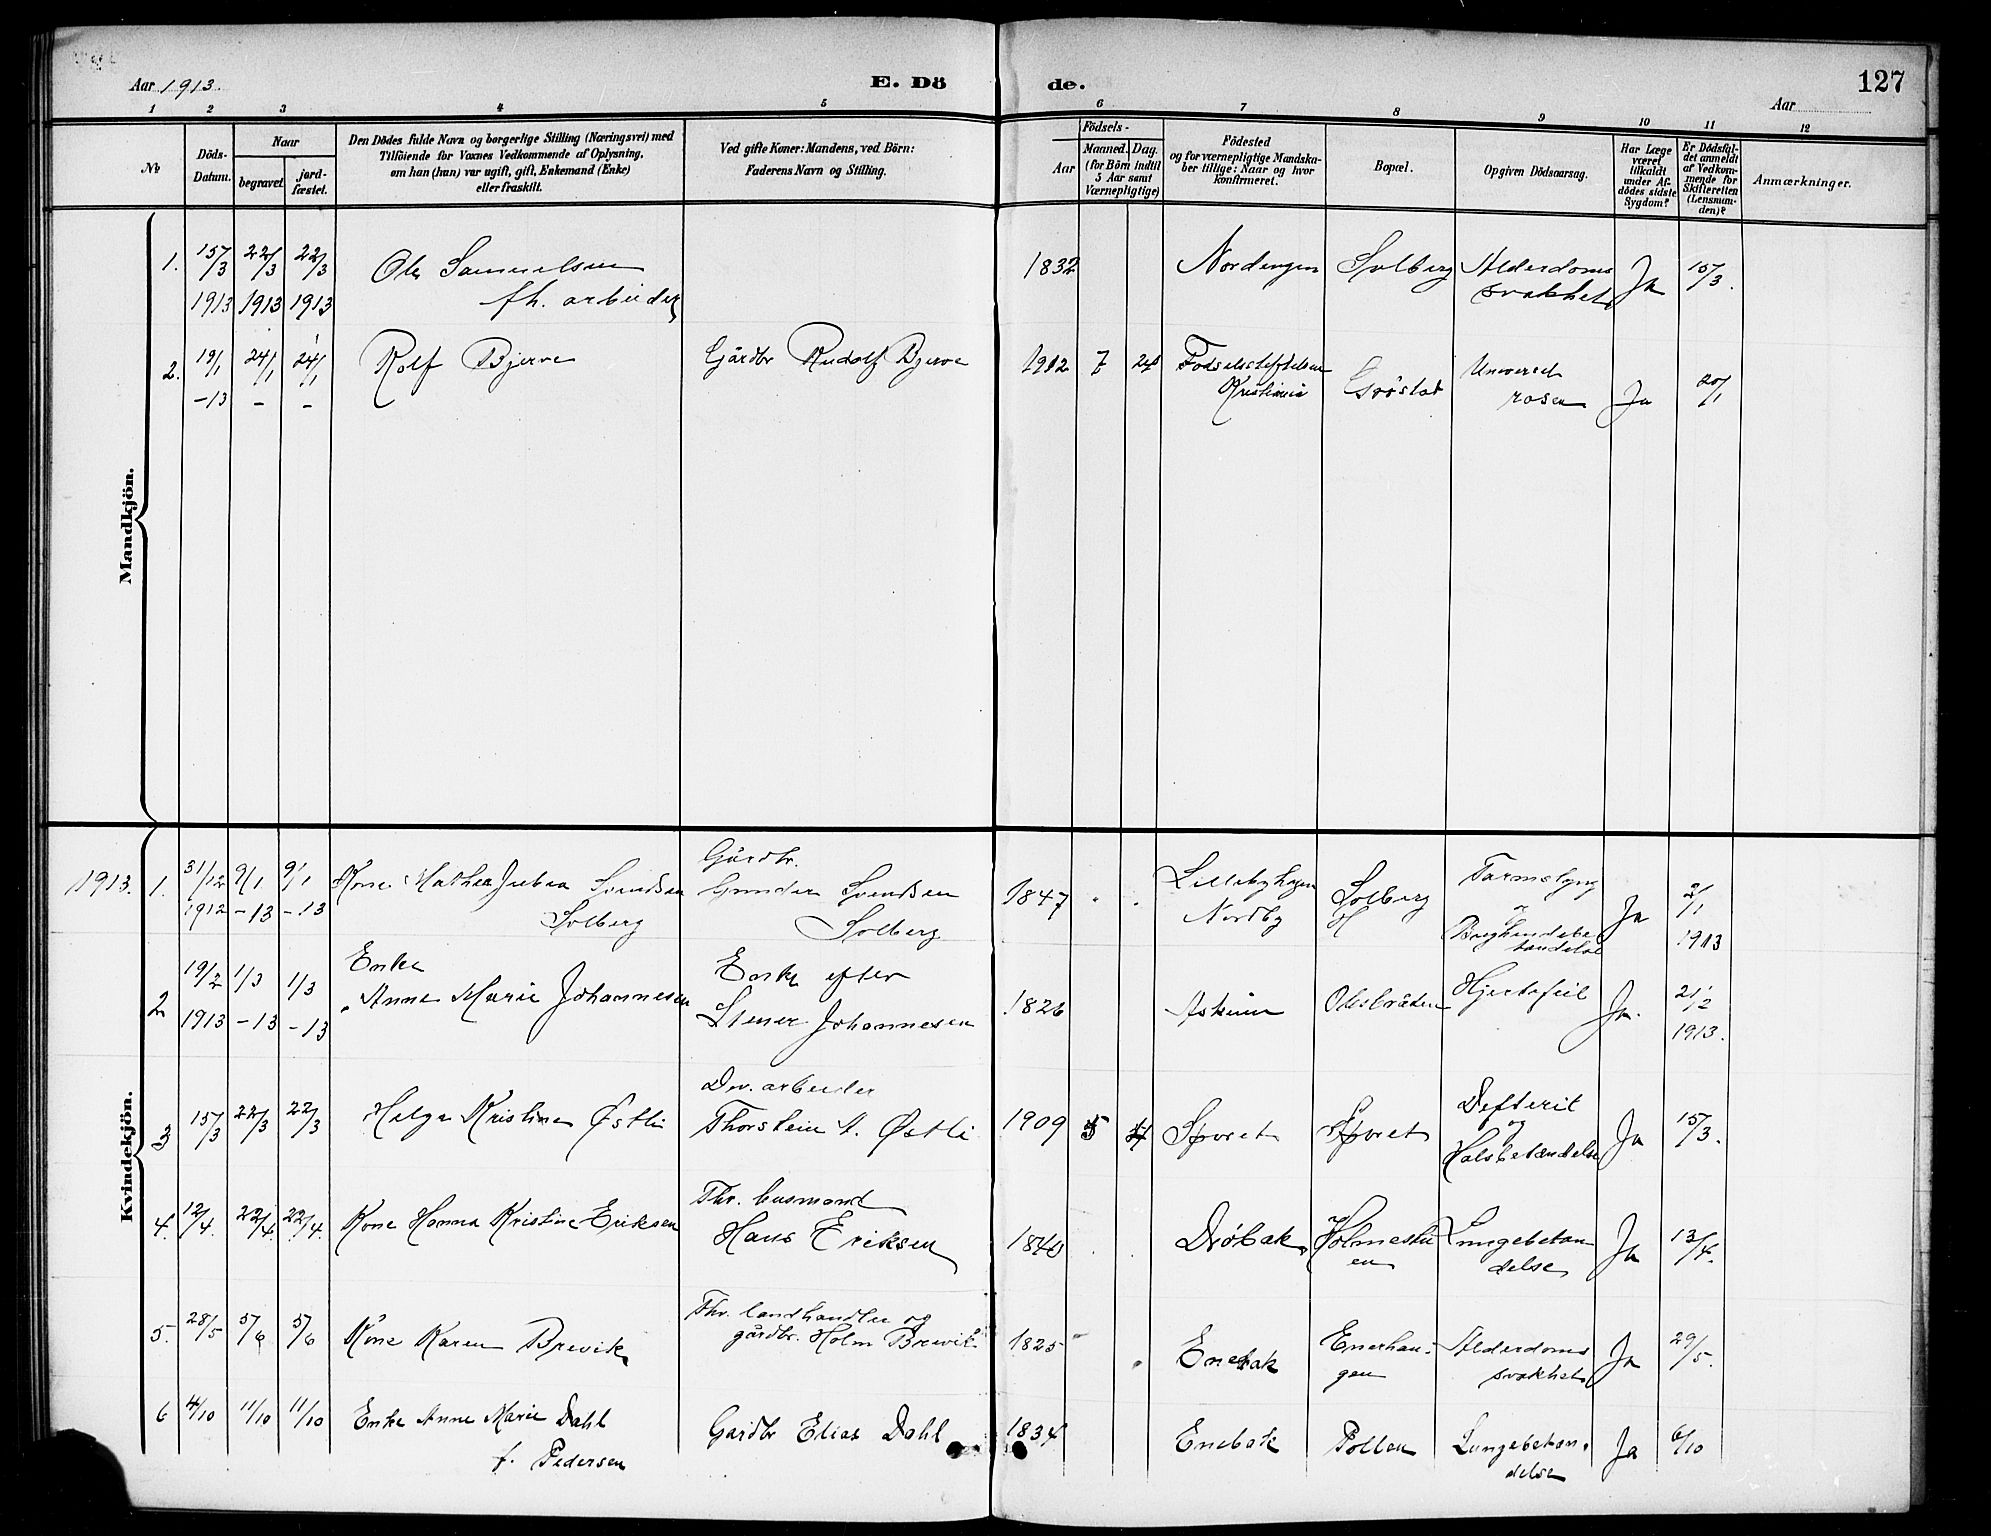 Aar 1913.
E. Dö
de.
127
Aar
1 2 3 4 5 6 7 8 9 10 11 12
No
Döds-
Datum.
Naar
begravet.
jord-
fæstet.
Den Dödes fulde Navn og borgerlige Stilling (Næringsvei) med
Tilföiende for Voxnes Vedkommende af Oplysning,
om han (hun) var ugift, gift, Enkemand (Enke)
eller fraskilt.
Ved gifte Koner: Mandens, ved Börn:
Faderens Navn og Stilling.
Födsels-
Aar
Maaned. Dag.
(for Börn indtil
5 Aar samt
Værnepligtige)
Födested
og for værnepligtige Mandska-
ber tillige: Naar og hvor
konfirmeret.
Bopæl.
Opgiven Dödsaarsag.
Har Læge
været
tilkaldt
under Af-
dödes sidste
Sygdom?
Er Dödsfal-
det anmeldt
af Vedkom-
mende for
Skifteretten
(Lensman-
den)?
Anmærkninger.
Mandkjön.
1. 15/3 22/3 22/3 Ole Samuelsen 1832 Nordengen Solberg Alderdoms Ja 15/3.
1913 1913 1913 fh. arbeider svakhet
2. 19/1 24/1 24/1 Rolf Bjerve Gårdbr Rudolf Bjerve 1912 7 24 Fødselsstiftelsen
Kristiania Grøstad rosen Ja 20/1
-13 - -
Kvindekjön.
1913. 1. 31/12 9/1 9/1 Kone Mathea Svendsen Gårdbr.
1912 -13 -13 Solberg Gunder Svendsen
Solberg
1847 Nordby Solberg
Ja 2/1
1913
2 19/2 1/3 1/3 Enke
1913 -13 -13 Anne Marie Johannesen Enke efter
Stener Johannesen
1826 Askim Olsbråten Hjertefeil Ja. 21/2
1913.
3 15/3 22/3 22/3 Helga Kristine Østli Dv. arbeider
Thorstein A. Østli
1909 5 4 Sporet Sporet Defterit
og
Halsbetændelse Ja 15/3.
4. 12/4. 22/4. 22/4. Kone Hanna Kristine Eriksen Fhv. husmand
Hans Eriksen
1840 Drøbak Lungebetæn-
delse Ja 13/4.
5. 28/5 5/6 5/6 Kone Karen Brevik Fhv. landhandler og
gårdbr. Holm Brevik
1825 Enebak Enerhau-
gen Alderdoms
svakhet Ja 29/5.
6 4/10 11/10 11/10 Enke Anne Marie Dahl
f. Pedersen
Gårdbr Elias Dahl 1834 Enebak Pollen Lungebetæn-
delse Ja 6/10